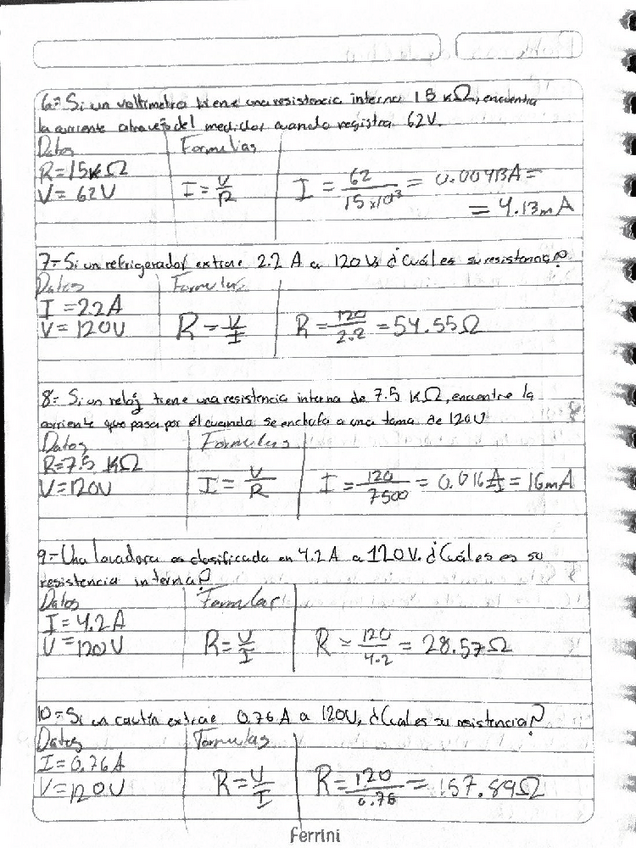 6.- Si un voltimetro tiene una resistencia interna 15 KΩ, encuentra
la corriente atraves del medidor cuando registra 62V.
Datos Formulas
R=15KΩ
V= 62V I=V/R I = 62/15x10^3 = 0.00413A=
= 4.13mA
7.- Si un refrigerador extrae 2.2 A a 120 V, ¿Cuál es su resistencia?
Datos Formulas
I=2.2A
V=120V R=V/I R=120/2.2=54.55Ω
8.- Si un reloj tiene una resistencia interna de 7.5 KΩ, encuentre la
corriente que pasa por él cuando se enchufa a una toma de 120V
Datos Formulas
R=7.5 KΩ
V=120V I=V/R I=120/7500=0.016A=16mA
9.- Una lavadora es clasificada en 4.2 A a 120V. ¿Cuáles es su
resistencia interna?
Datos Formulas
I=4.2A
V=120V R=V/I R=120/4.2=28.57Ω
10.- Si un cautín extrae 0.76 A a 120V, ¿Cual es su resistencia?
Datos Formulas
I=0.76A
V=120V R=V/I R=120/0.76=157.89Ω
Ferrini